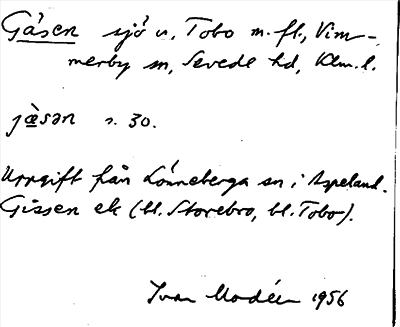 Gåsen sjö v, Tobo m. fl., Vim-
merby sn, Sevede hd, Klm. l.
jæ̀sən s. 30.
Uppgift från Lönneberga sn i Aspeland.
Gissen ek (bl. Storebro, bl. Tobo).
Ivar Modéer 1956